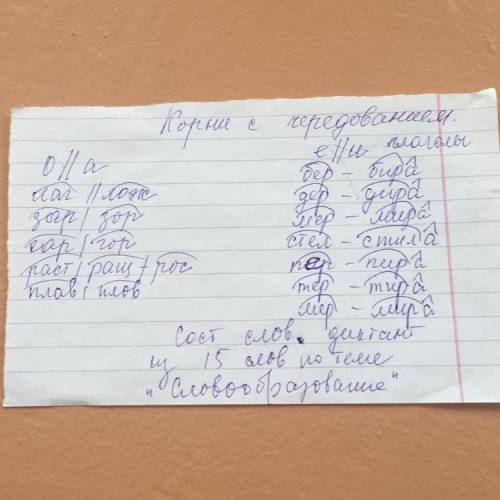 Корни с чередованием.
о//а
лаг//лож
зар/зор
гар/гор
раст/ращ+рос
плав/плов
е//и глаголы
бер - бирâ
дер - дирâ
мер - мирâ
стел - стилâ
пер - пирâ
тер - тирâ
мер - мирâ
Сост слов. диктант
из 15 слов по теме
"Словообразование"